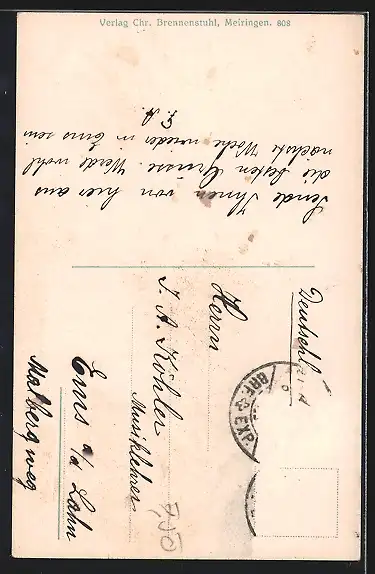 Verlag Chr. Brennenstuhl, Meiringen. 808
Sende Ihnen von hier aus
die besten Grüsse. Werde wohl
nächste Woche wieder in Ems sein
Deutschland
Herrn
J. A. Köhler
Musiklehrer
Ems a/d Lahn
Malbergweg
BRF. EXP.
7,50